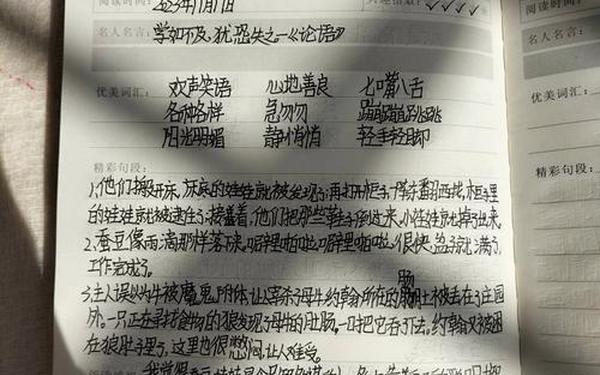 阅读时间： 2023年1月1日
名人名言： 学如不及，犹恐失之。—《论语》
优美词汇： 欢声笑语 心地善良 七口嘴八舌
各种各样 急匆匆 蹦蹦跳跳
阳光明媚 静悄悄 轻手轻脚
精彩句段：
1.他们掀开床，床底的娃娃就被发现了；再打开柜子，翻西找，柜子里
的娃娃就被逮住了；接着，他们把那些鞋子倒过来，小娃娃就掉了出来。
2.蚕豆像雨滴那样落下来，噼里啪啦，噼里啪啦，很快，盒子就满了，
工作完成了。
肠
3.主人误以为牛被魔鬼附体，让宰杀了母牛，约翰所在的肚被丢在了庄园
外。一只正在寻找食物的狼发现了母牛的肚肠，一口把它吞了下去，约翰又被困
在狼肚子里了，这里也很憋闷，让人难受。
我觉得
阅读时间：
名人名言：
优美词汇：
精彩句段：